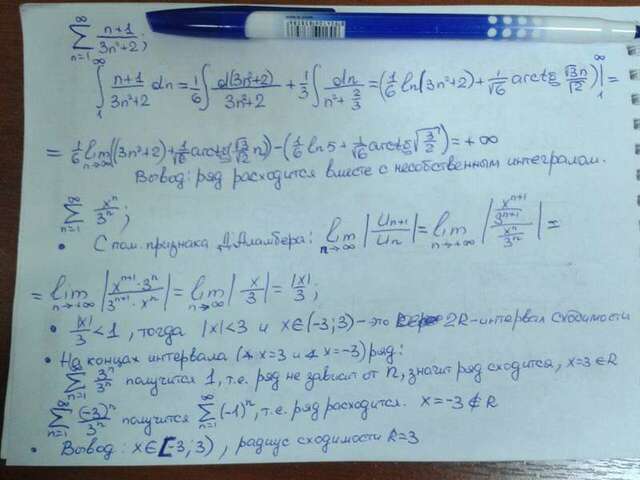 ∑_{n=1}^{∞} (n+1)/(3n²+2);
∫_1^∞ (n+1)/(3n²+2) dn = 1/6 ∫ d(3n²+2)/(3n²+2) + 1/3 ∫ dn/(n²+2/3) = (1/6 ln(3n²+2) + 1/√6 arctg √3n/√2)|_1^∞ =
= 1/6 lim_{n→∞} ((3n²+2) + 1/√6 arctg(√3/√2 n)) - (1/6 ln5 + 1/√6 arctg √(3/2)) = +∞
Вывод: ряд расходится вместе с несобственным интегралом.
∑_{n=1}^{∞} xⁿ/3ⁿ;
• С пом. признака Д.Аламбера: lim_{n→∞} |U_{n+1}/U_n| = lim_{n→+∞} |(x^{n+1}/3^{n+1})/(xⁿ/3ⁿ)| =
= lim_{n→+∞} |(x^{n+1}·3ⁿ)/(3^{n+1}·xⁿ)| = lim_{n→∞} |x/3| = |x|/3;
• |x|/3 < 1, тогда |x|<3 и x∈(-3;3) - это 2R-интервал сходимости
• На концах интервала (x=3 и x=-3) ряд:
∑_{n=1}^{∞} 3ⁿ/3ⁿ получится 1, т.е. ряд не зависит от n, значит ряд сходится, x=3 ∈ R
∑_{n=1}^{∞} (-3)ⁿ/3ⁿ получится ∑_{n=1}^{∞} (-1)ⁿ, т.е. ряд расходится. x=-3 ∉ R
• Вывод: x∈[-3;3), радиус сходимости R=3